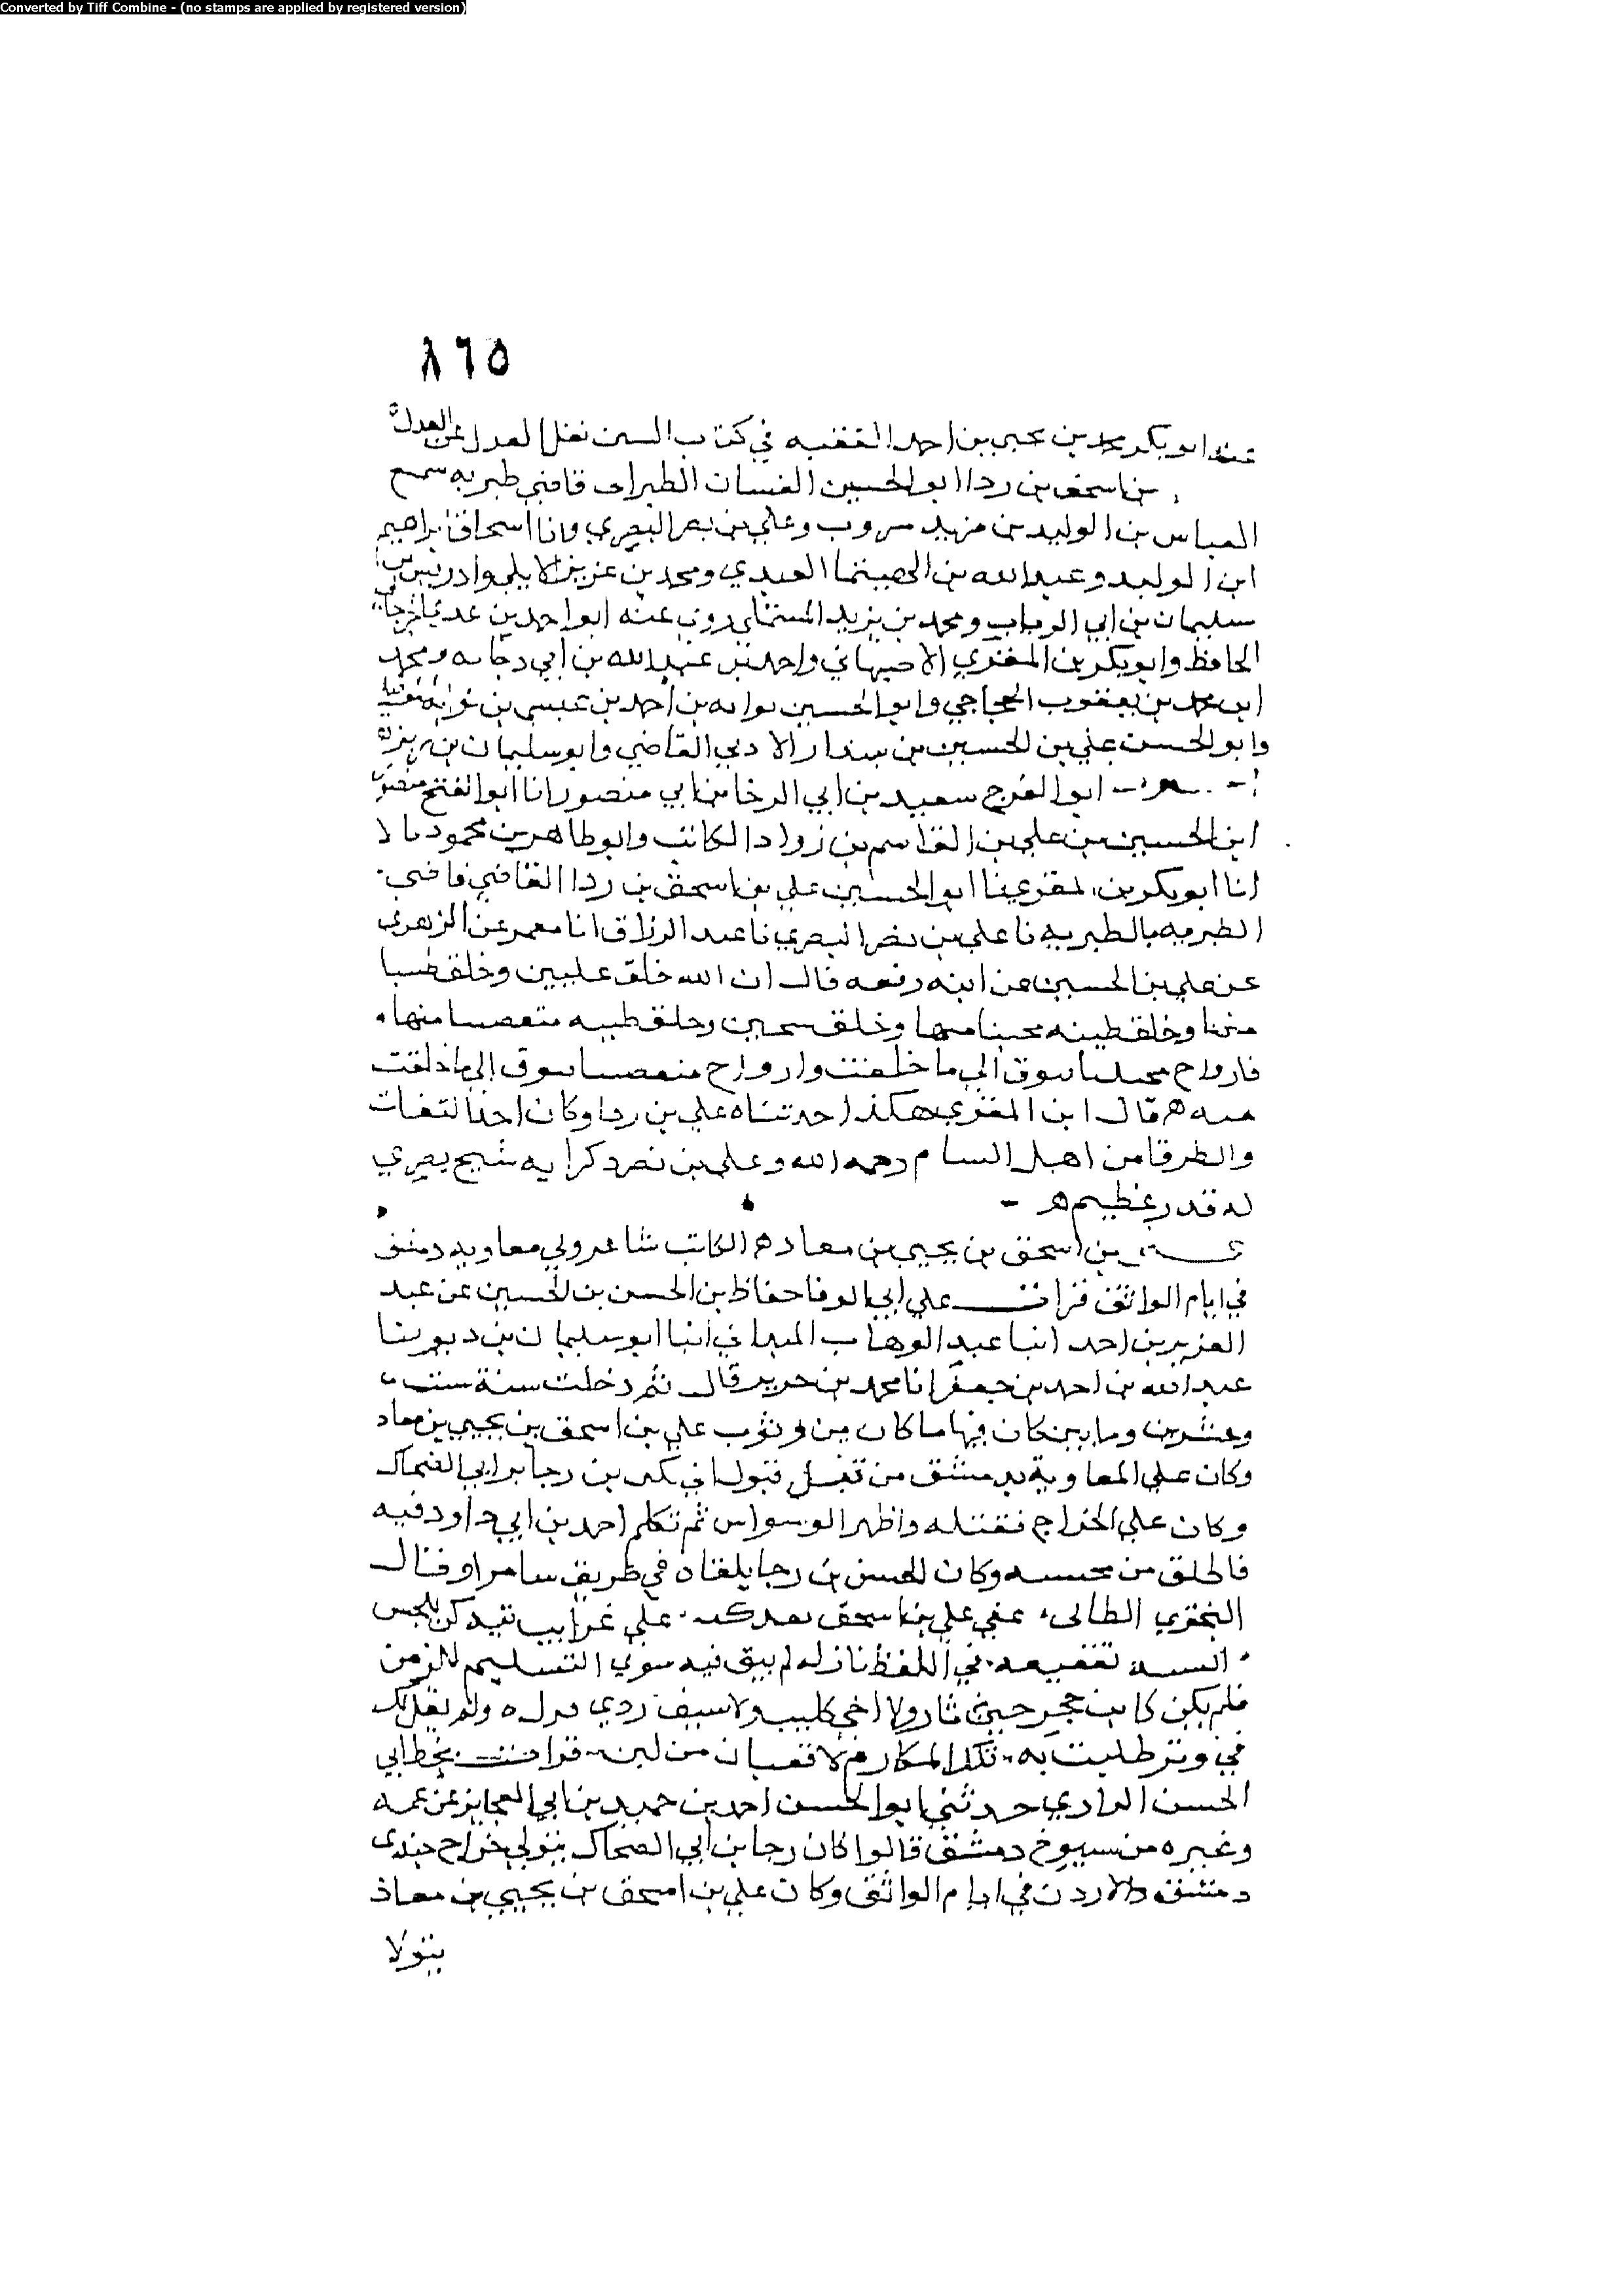 Converted by Tiff Combine - (no stamps are applied by registered version)
٨٦٥
عنه ابو بكر محمد بن يحيى بن احمد الفقيه في كتاب السنن نقل العدل عن العدل
بن اسحق بن ردا ابو الحسين الغسان الطبراني قاضي طبريه سمع
العباس بن الوليد بن مزيد وعلي بن نصر البصري وابا اسحاق ابراهيم
ابن الوليد وعبد الله بن العبدي ومحمد بن عزيز الايلي وادريس بن
سليمان بن ابي الرباب ومحمد بن يزيد روى عنه ابو احمد بن عدي الجرجاني
الحافظ وابو بكر بن المقري الاصبهاني واحمد بن عبد الله بن ابي دجانه ومحمد
ابن محمد بن يعقوب الحجاجي وابو الحسين بن احمد بن عيسى بن
وابو الحسن علي بن الحسين بن بندار الادني القاضي وابو سليمان بن زبر
ابو الفرج سعيد بن ابي الرجا بن ابي منصور انا ابو الفتح منصور
ابن الحسين بن علي بن القاسم بن زواد الكاتب وابو طاهر بن محمود قالا
انا ابو بكر بن المقري نا ابو الحسين علي بن اسحق بن ردا القاضي قاضي
الطبريه بالطبريه نا علي بن نصر البصري نا عبد الرزاق انا معمر عن الزهري
عن علي بن الحسين عن ابيه رفعه قال ان الله خلق عليين وخلق طينا
منها وخلق طينه محبينا منها وخلق سجين وخلق طينه مبغضينا منها
فارواح محبينا تتوق الى ما خلقت وارواح مبغضينا تتوق الى ما خلقت
منه قال ابن المقري هكذا حدثناه علي بن ردا وكان احد الثقات
والظرفا من اهل الشام رحمه الله وعلي بن نصر ذكر انه شيخ بصري
له قدر عظيم
بن اسحق بن يحيى بن معاذ الكاتب شاعر ولي معاويه دمشق
في ايام الواثق قرات على ابي الوفا حفاظ بن الحسن بن الحسين عن عبد
العزيز بن احمد انبا عبد الوهاب الميداني انبا ابو سليمان بن زبر نبا
عبد الله بن احمد بن جعفر انا محمد بن جرير قال ثم دخلت سنة ست
وعشرين ومايتين كان فيها ما كان من وثوب علي بن اسحق بن يحيى بن معاد
وكان على المعاوية بدمشق من قبل بن رجا بن ابي الضحاك
وكان على الخراج فقتله واظهر الوسواس ثم تكلم احمد بن ابي داود فيه
فاطلق من محبسه وكان الحسن بن رجا يلقاه في طريق سامرا وقال
البحتري الطائي عفى علي بن اسحق
في اللفظ نازله لم يبق فيه سوى التسليم للزمن
فلم يكن كابن حجر حين ثار ولا اخي كليب ولا سيف ولم يقل لك
في وتر طلبت به تلك المكارم لا قعبان من لبن قرات بخط ابي
الحسن الرازي حدثني ابو الحسن احمد بن حميد بن ابي العجايز عن عمه
وغيره من شيوخ دمشق قالوا كان رجا بن ابي الضحاك يتولى خراج جندي
دمشق والاردن في ايام الواثق وكان علي بن اسحق بن يحيى بن معاذ
يتولا